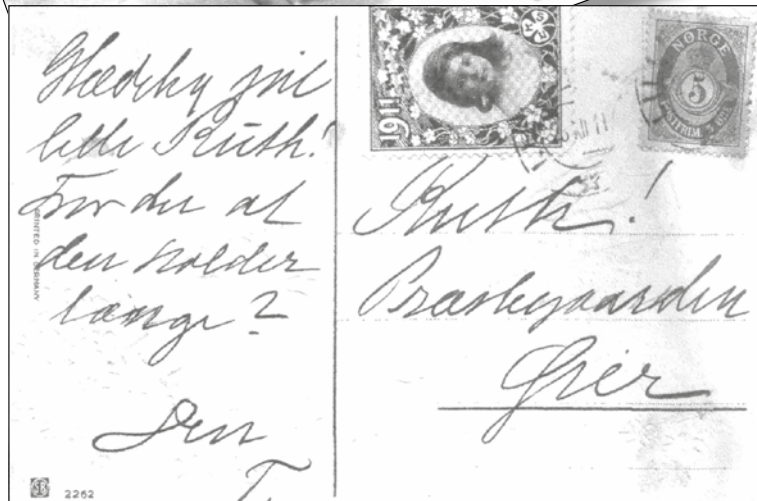 Glædelig jul
lille Ruth!
Tror du at
den holder
længe?
Din
PRINTED IN GERMANY
2262
1911
NORGE
5
POSTFRIM 5 ØRE
XII 11
Ruth!
Præstegaarden
Lier